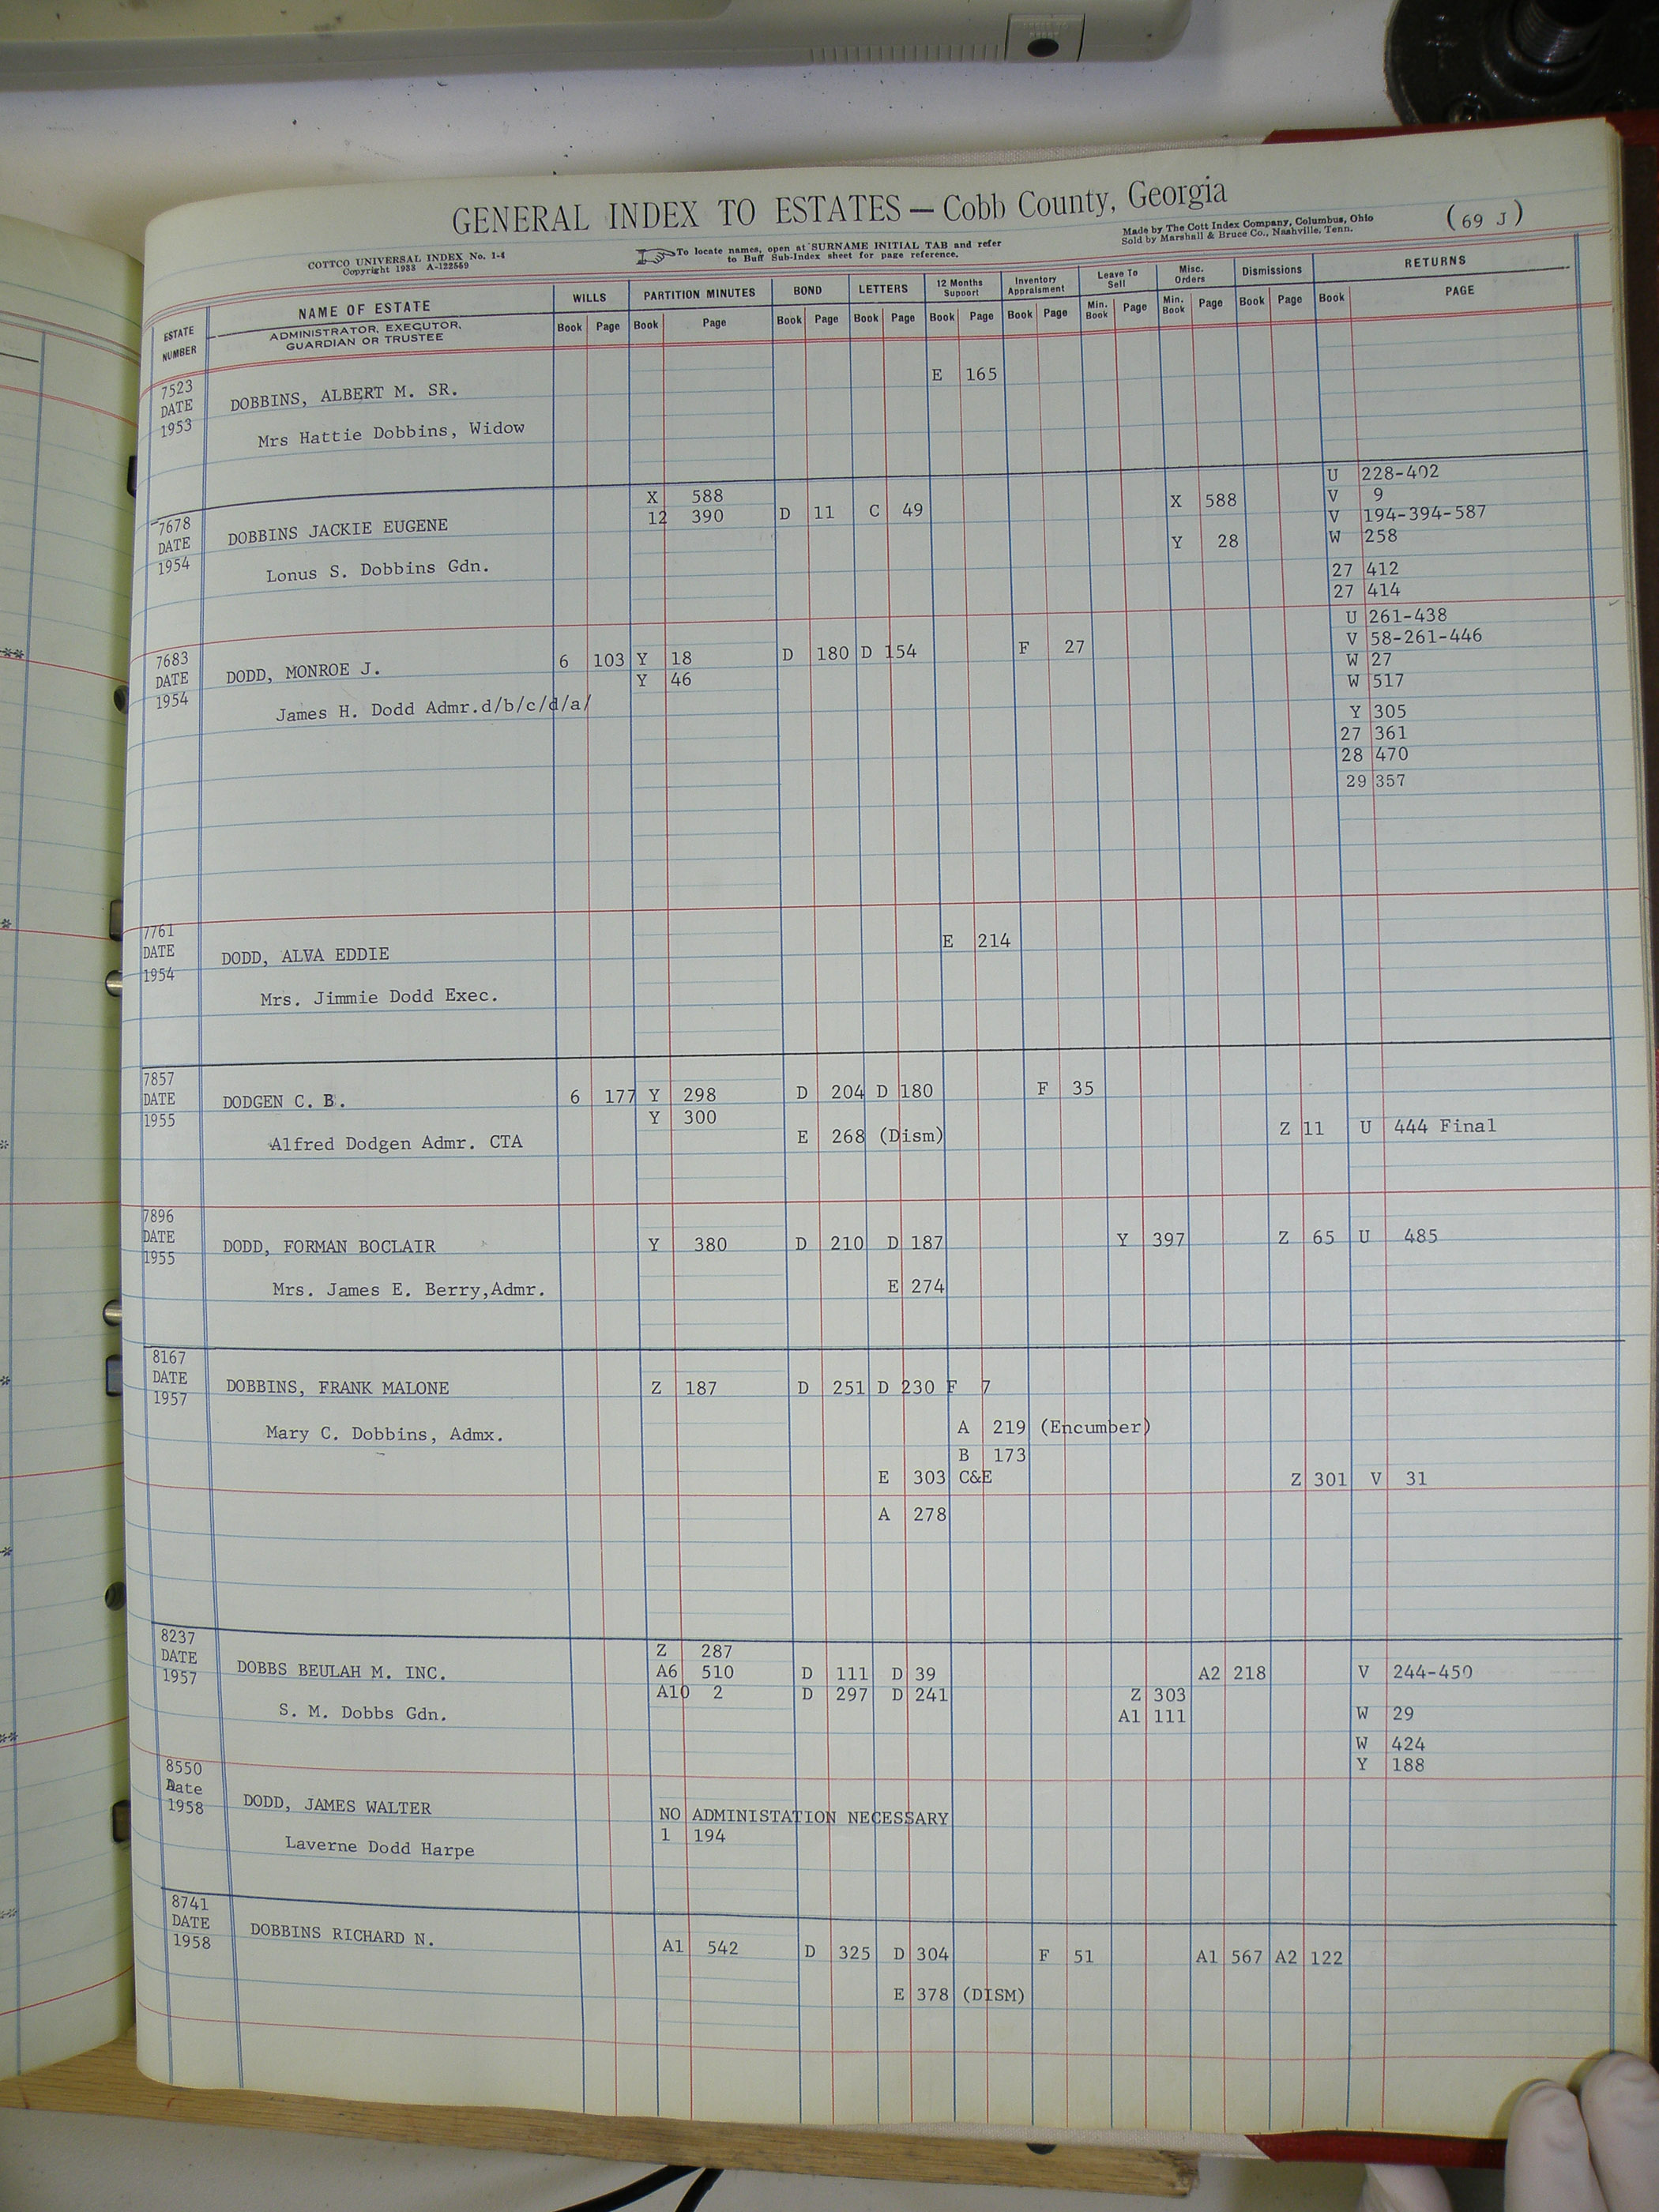 GENERAL INDEX TO ESTATES — Cobb County, Georgia
(69 J)
COTTCO UNIVERSAL INDEX No. 1-4
Copyright 1933 A-122569
To locate names, open at SURNAME INITIAL TAB and refer
to Buff Sub-Index sheet for page reference.
Made by The Cott Index Company, Columbus, Ohio
Sold by Marshall & Bruce Co., Nashville, Tenn.
ESTATE NUMBER
NAME OF ESTATE
ADMINISTRATOR, EXECUTOR,
GUARDIAN OR TRUSTEE
WILLS PARTITION MINUTES BOND LETTERS 12 Months Support Inventory Appraisment Leave To Sell Misc. Orders Dismissions RETURNS
Book Page Book Page Book Page Book Page Book Page Book Page Min. Book Page Min. Book Page Book Page Book PAGE
7523 E 165
DATE DOBBINS, ALBERT M. SR.
1953 Mrs Hattie Dobbins, Widow
U 228-402
X 588 X 588 V 9
7678 DOBBINS JACKIE EUGENE 12 390 D 11 C 49 V 194-394-587
DATE Y 28 W 258
1954 Lonus S. Dobbins Gdn. 27 412
27 414
U 261-438
7683 6 103 Y 18 D 180 D 154 F 27 V 58-261-446
DATE DODD, MONROE J. Y 46 W 27
1954 James H. Dodd Admr.d/b/c/d/a/ W 517
Y 305
27 361
28 470
29 357
7761 E 214
DATE DODD, ALVA EDDIE
1954
Mrs. Jimmie Dodd Exec.
7857
DATE DODGEN C. B. 6 177 Y 298 D 204 D 180 F 35
1955 Y 300
Alfred Dodgen Admr. CTA E 268 (Dism) Z 11 U 444 Final
7896
DATE DODD, FORMAN BOCLAIR Y 380 D 210 D 187 Y 397 Z 65 U 485
1955
Mrs. James E. Berry,Admr. E 274
8167
DATE DOBBINS, FRANK MALONE Z 187 D 251 D 230 F 7
1957
Mary C. Dobbins, Admx. A 219 (Encumber)
B 173
E 303 C&E Z 301 V 31
A 278
8237 Z 287
DATE DOBBS BEULAH M. INC. A6 510 D 111 D 39 A2 218 V 244-450
1957 A10 2 D 297 D 241 Z 303
S. M. Dobbs Gdn. A1 111 W 29
W 424
Y 188
8550
Date
1958 DODD, JAMES WALTER NO ADMINISTATION NECESSARY
1 194
Laverne Dodd Harpe
8741
DATE DOBBINS RICHARD N.
1958 A1 542 D 325 D 304 F 51 A1 567 A2 122
E 378 (DISM)